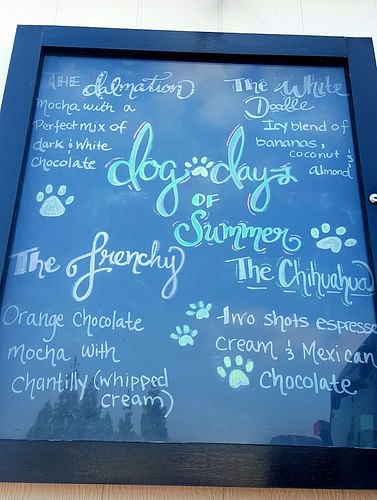 THE dalmation
Mocha with a
Perfect mix of
dark & White
Chocolate
The White
Doodle
Icy blend of
bananas,
coconut &
almond
dog days
OF
Summer
The frenchy
Orange Chocolate
mocha with
Chantilly (whipped
cream)
The Chihuahua
Two shots espresso
cream & Mexican
Chocolate